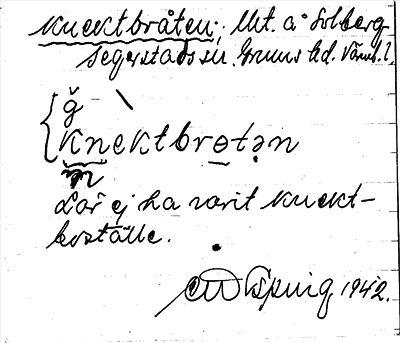 Knektbråten; Utt. a° Solberg
Segerstads sn. Grums hd. Värml.
ğ
knektbrotən
m
Lär ej ha varit knekt-
boställe.
1942.